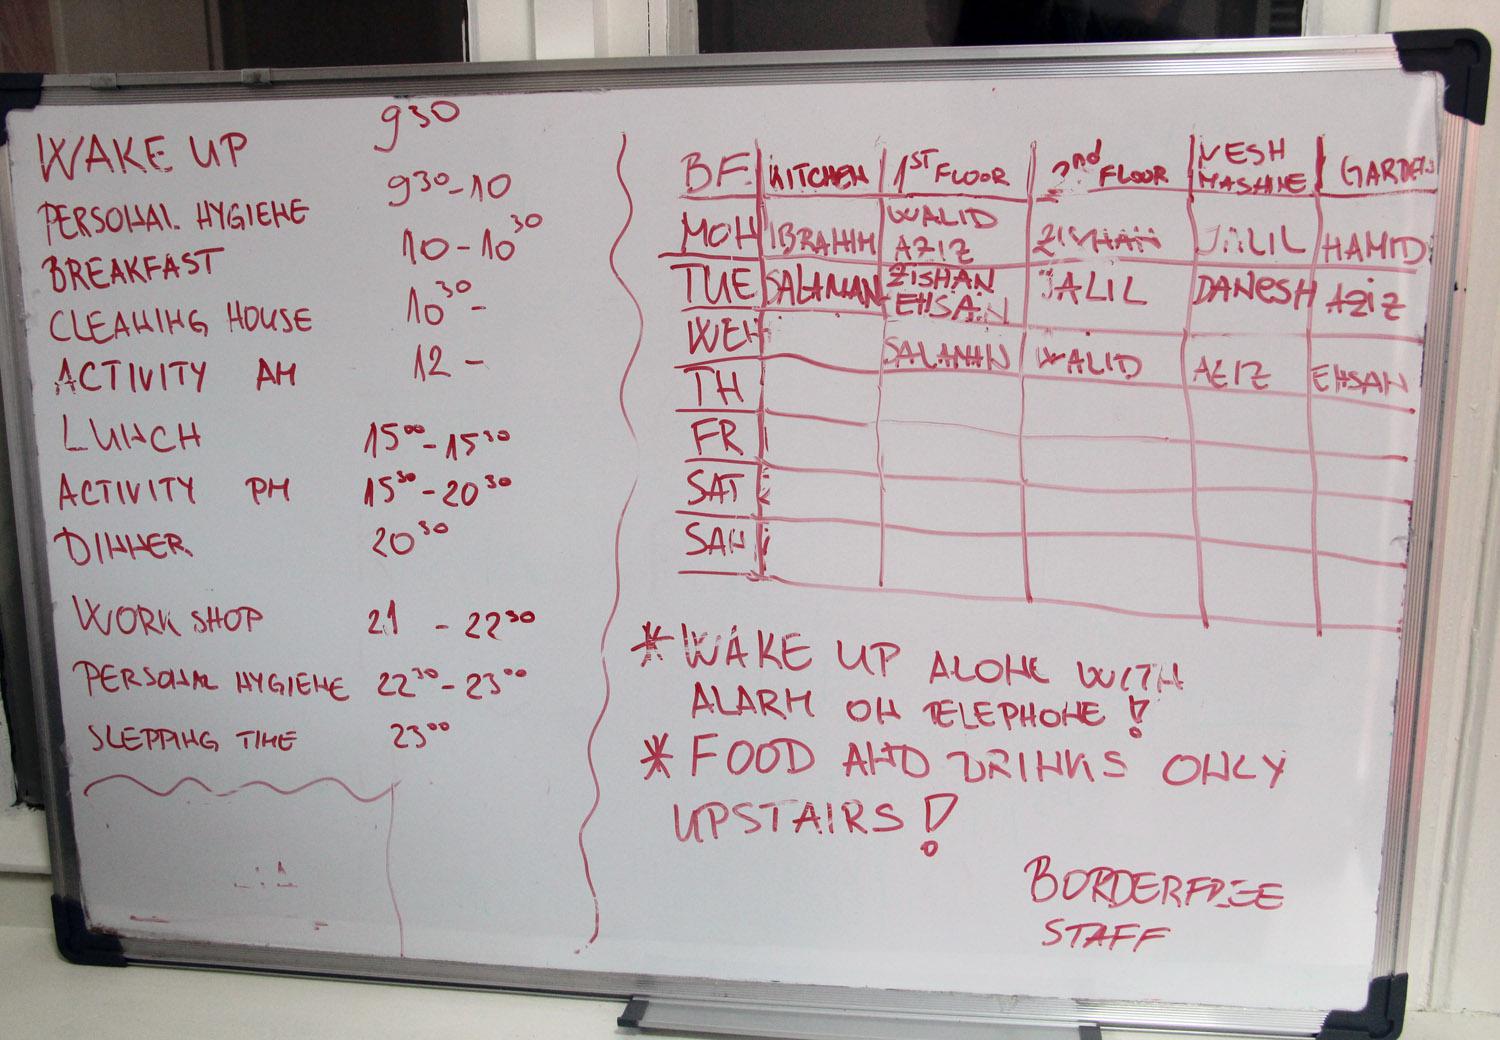 WAKE UP 9³⁰
PERSONAL HYGIENE 9³⁰-10
BREAKFAST 10-10³⁰
CLEANING HOUSE 10³⁰-
ACTIVITY AM 12-
LUNCH 15⁰⁰-15³⁰
ACTIVITY PM 15³⁰-20³⁰
DINNER 20³⁰
WORK SHOP 21 - 22³⁰
PERSONAL HYGIENE 22³⁰-23⁰⁰
SLEPPING TIME 23⁰⁰
BF KITCHEN 1ST FLOOR 2nd FLOOR VESH MASHINE GARDEN
MON IBRAHIM WALID AZIZ ZISHAN JALIL HAMID
TUE SALAMAN ZISHAN EHSAN JALIL DANESH AZIZ
WEN SALAMAN WALID AZIZ EHSAN
TH
FR
SAT
SAN
* WAKE UP ALONE WITH
ALARM ON TELEPHONE!
* FOOD AND DRINKS ONLY
UPSTAIRS!
BORDERFREE
STAFF